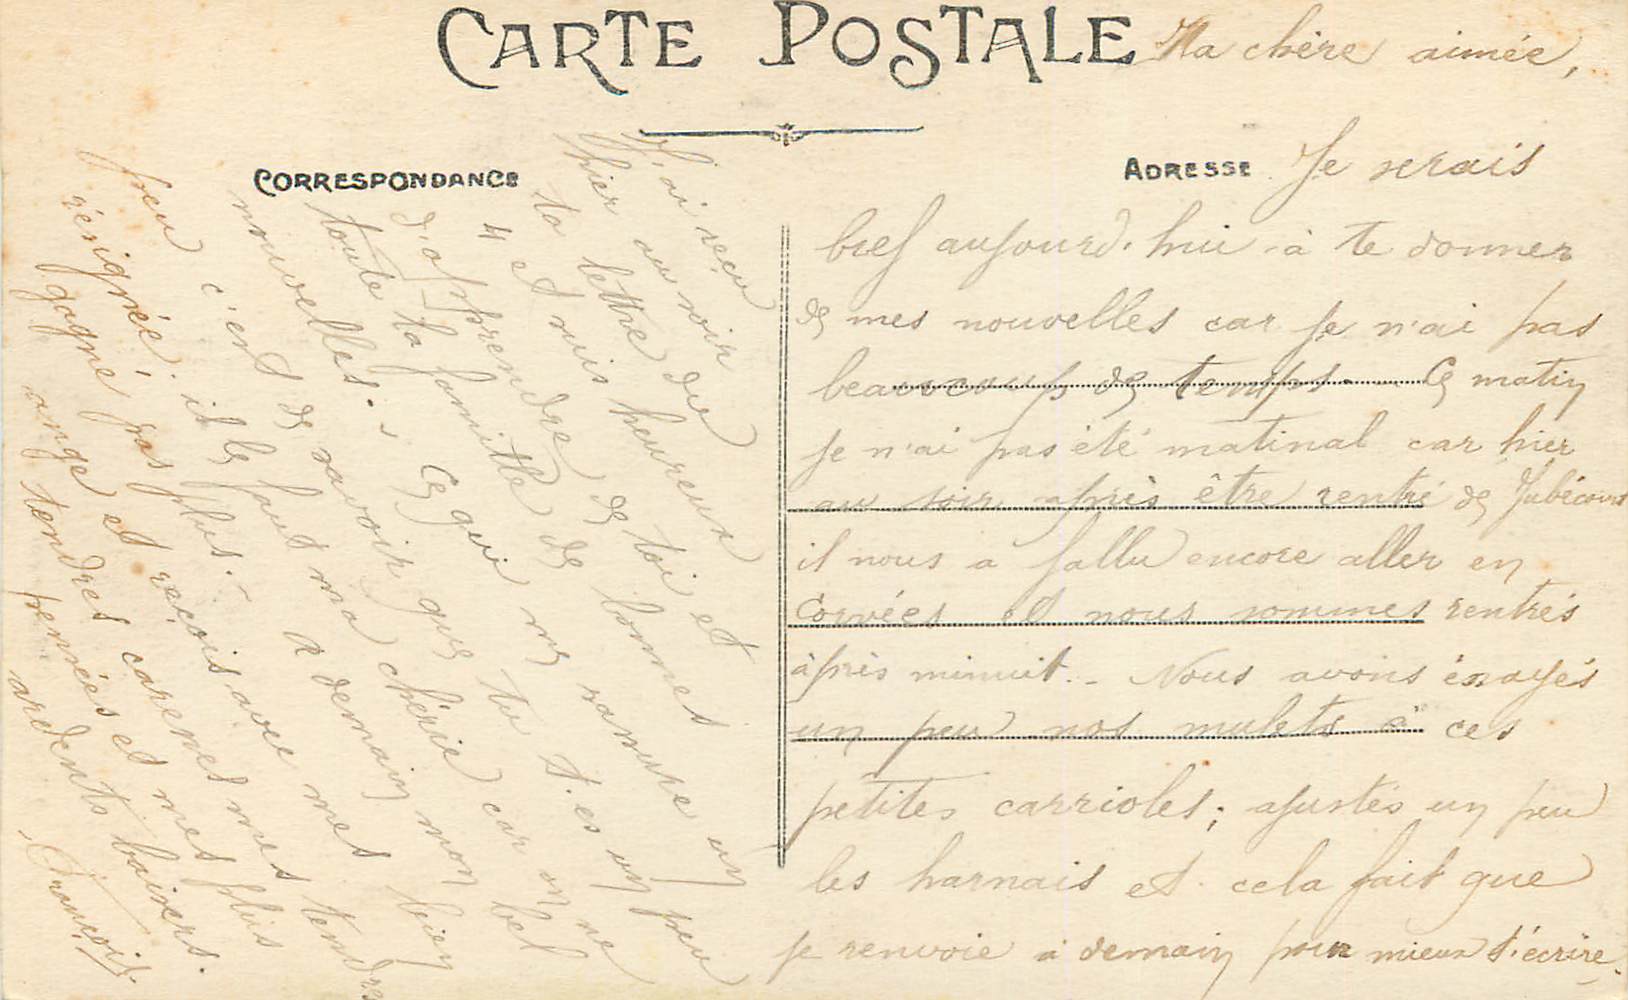 CARTE POSTALE
CORRESPONDANCE
ADRESSE
Ma chère aimée,
Je serais
bref aujourd'hui à te donner
de mes nouvelles car je n'ai pas
beaucoup de temps. Ce matin
je n'ai pas été matinal car hier
au soir après être rentré de Jubécourt
il nous a fallu encore aller en
corvées et nous sommes rentrés
àprès minuit. - Nous avons éssayés
un peu nos mulets à ces
petites carrioles; ajustés un peu
les harnais et cela fait que
je renvoie à demain pour mieux t'écrire.
J'ai reçu
hier au soir
ta lettre du
4 et suis heureux
d'apprendre de toi et
toute ta famille de bonnes
nouvelles. - Ce qui me rassure un
peu c'est de savoir que tu t'es un peu
résignée, il le faut ma chérie car on ne
gagne pas plus. - A demain mon bel
ange et reçois avec mes bien
tendres caresses mes tendres
pensées et mes plus
ardents baisers.
François